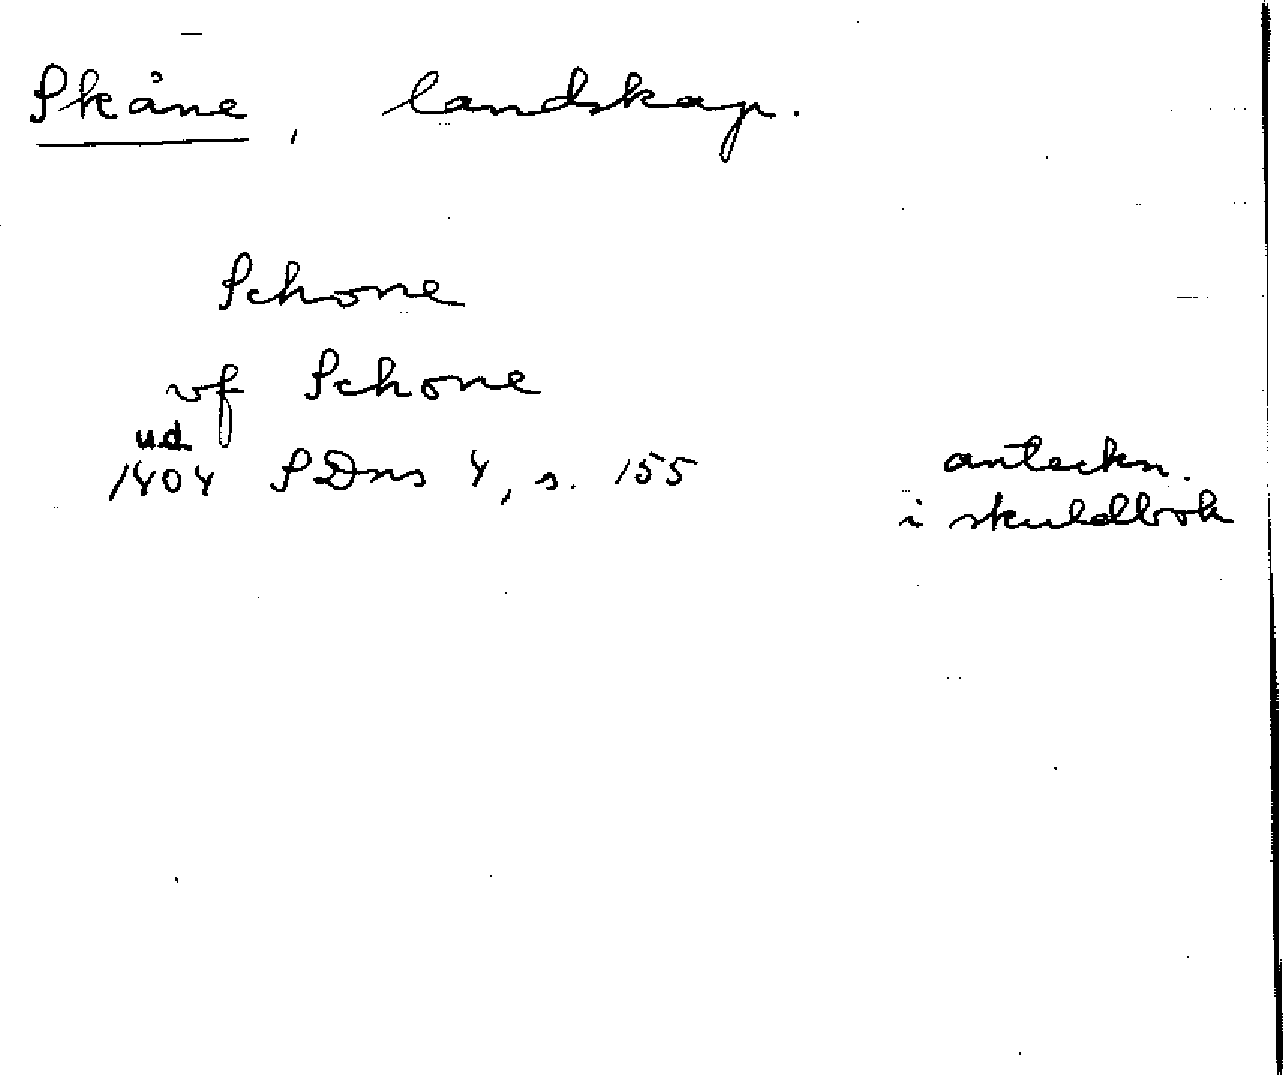 Skåne, landskap.
Schone
vf Schone
u.d.
1404 SDns 4, s. 155
anteckn.
i skuldbok